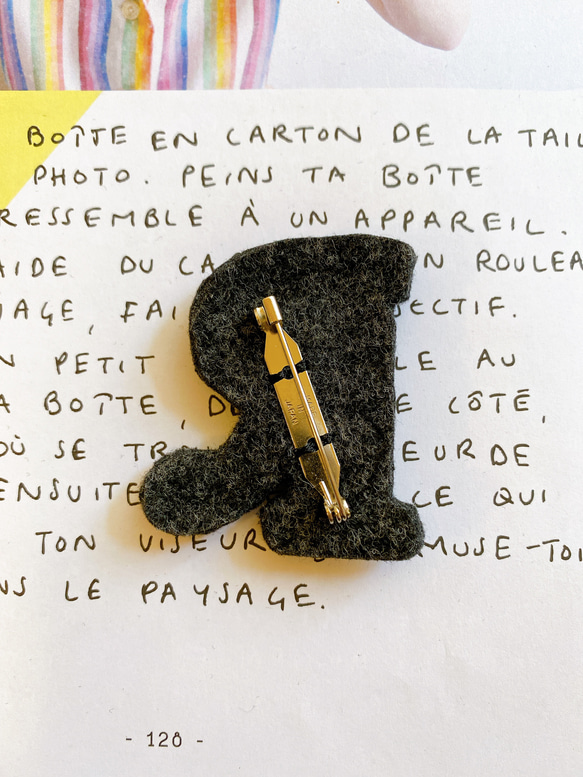 BOÎTE EN CARTON DE LA TAIL
PHOTO. PEINS TA BOÎTE
RESSEMBLE À UN APPAREIL.
AIDE DU CA N ROULEA
AGE, FAI JECTIF.
N PETIT LE AU
A BOÎTE, D E CÔTÉ,
OÙ SE TR EUR DE
ENSUITE CE QUI
TON VISEUR MUSE-TOI
NS LE PAYSAGE.
- 128 -
JAPAN